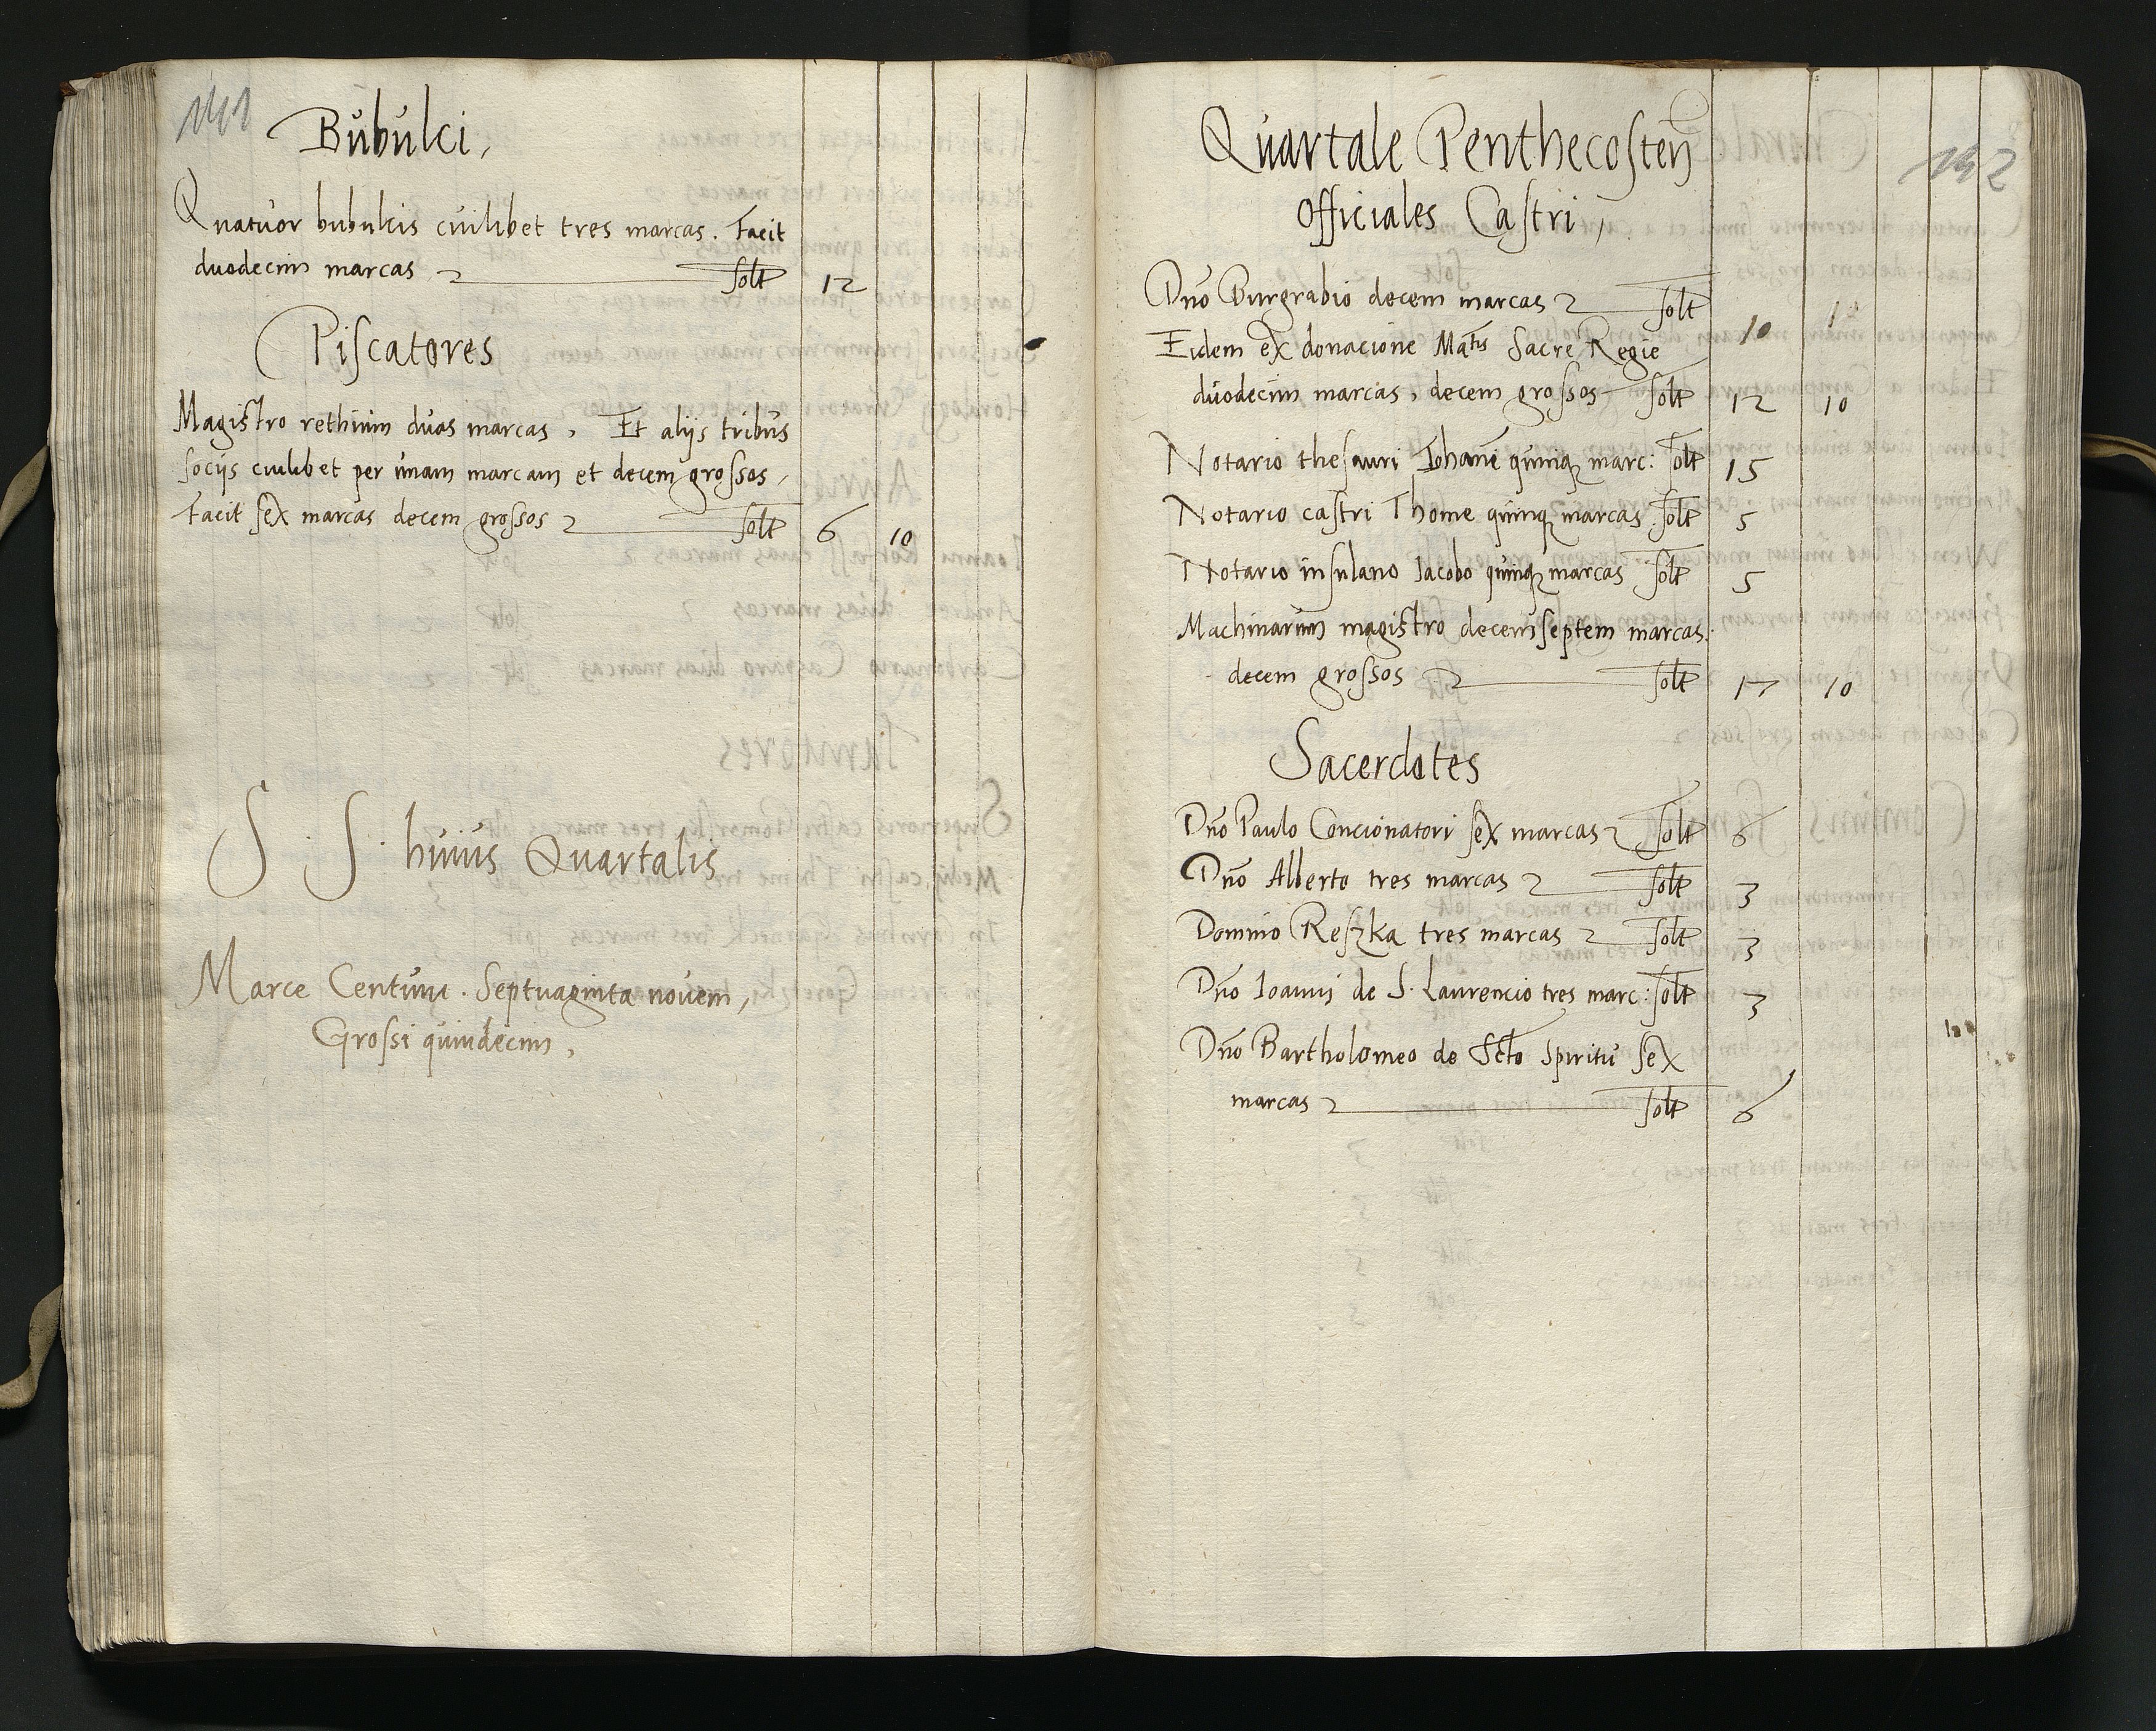 141
Bubulci,
Quatuor bubulcis cuilibet tres marcas. Facit
duodecim marcas solt 12
Piscatores
Magistro rethium duas marcas, Et alijs tribus
socijs cuilibet per unam marcam et decem grossos,
Facit sex marcas decem grossos solt 6 10
S. S. huius Quartalis
Marce Centum. Septuaginta novem,
Grossi quindecim,
142
Quartale Penthecosten
Officiales Castri,
Dno Burgrabio decem marcas solt 10
Eidem ex donacione Matis Sacre Regie
duodecim marcas, decem grossos solt 12 10
Notario thesauri Johanē quinq marc: solt 15
Notario castri Thome quinq marcas solt 5
Notario insulano Jacobo quinq marcas solt 5
Machinarum magistro decemseptem marcas.
decem grossos solt 17 10
Sacerdotes
Dno Paulo Concionatori sex marcas solt 6
Dno Alberto tres marcas solt 3
Domino Reszka tres marcas solt 3
Dno Ioanni de S. Laurencio tres marc: solt 3
Dno Bartholomeo de Scto Spiritu sex
marcas solt 6